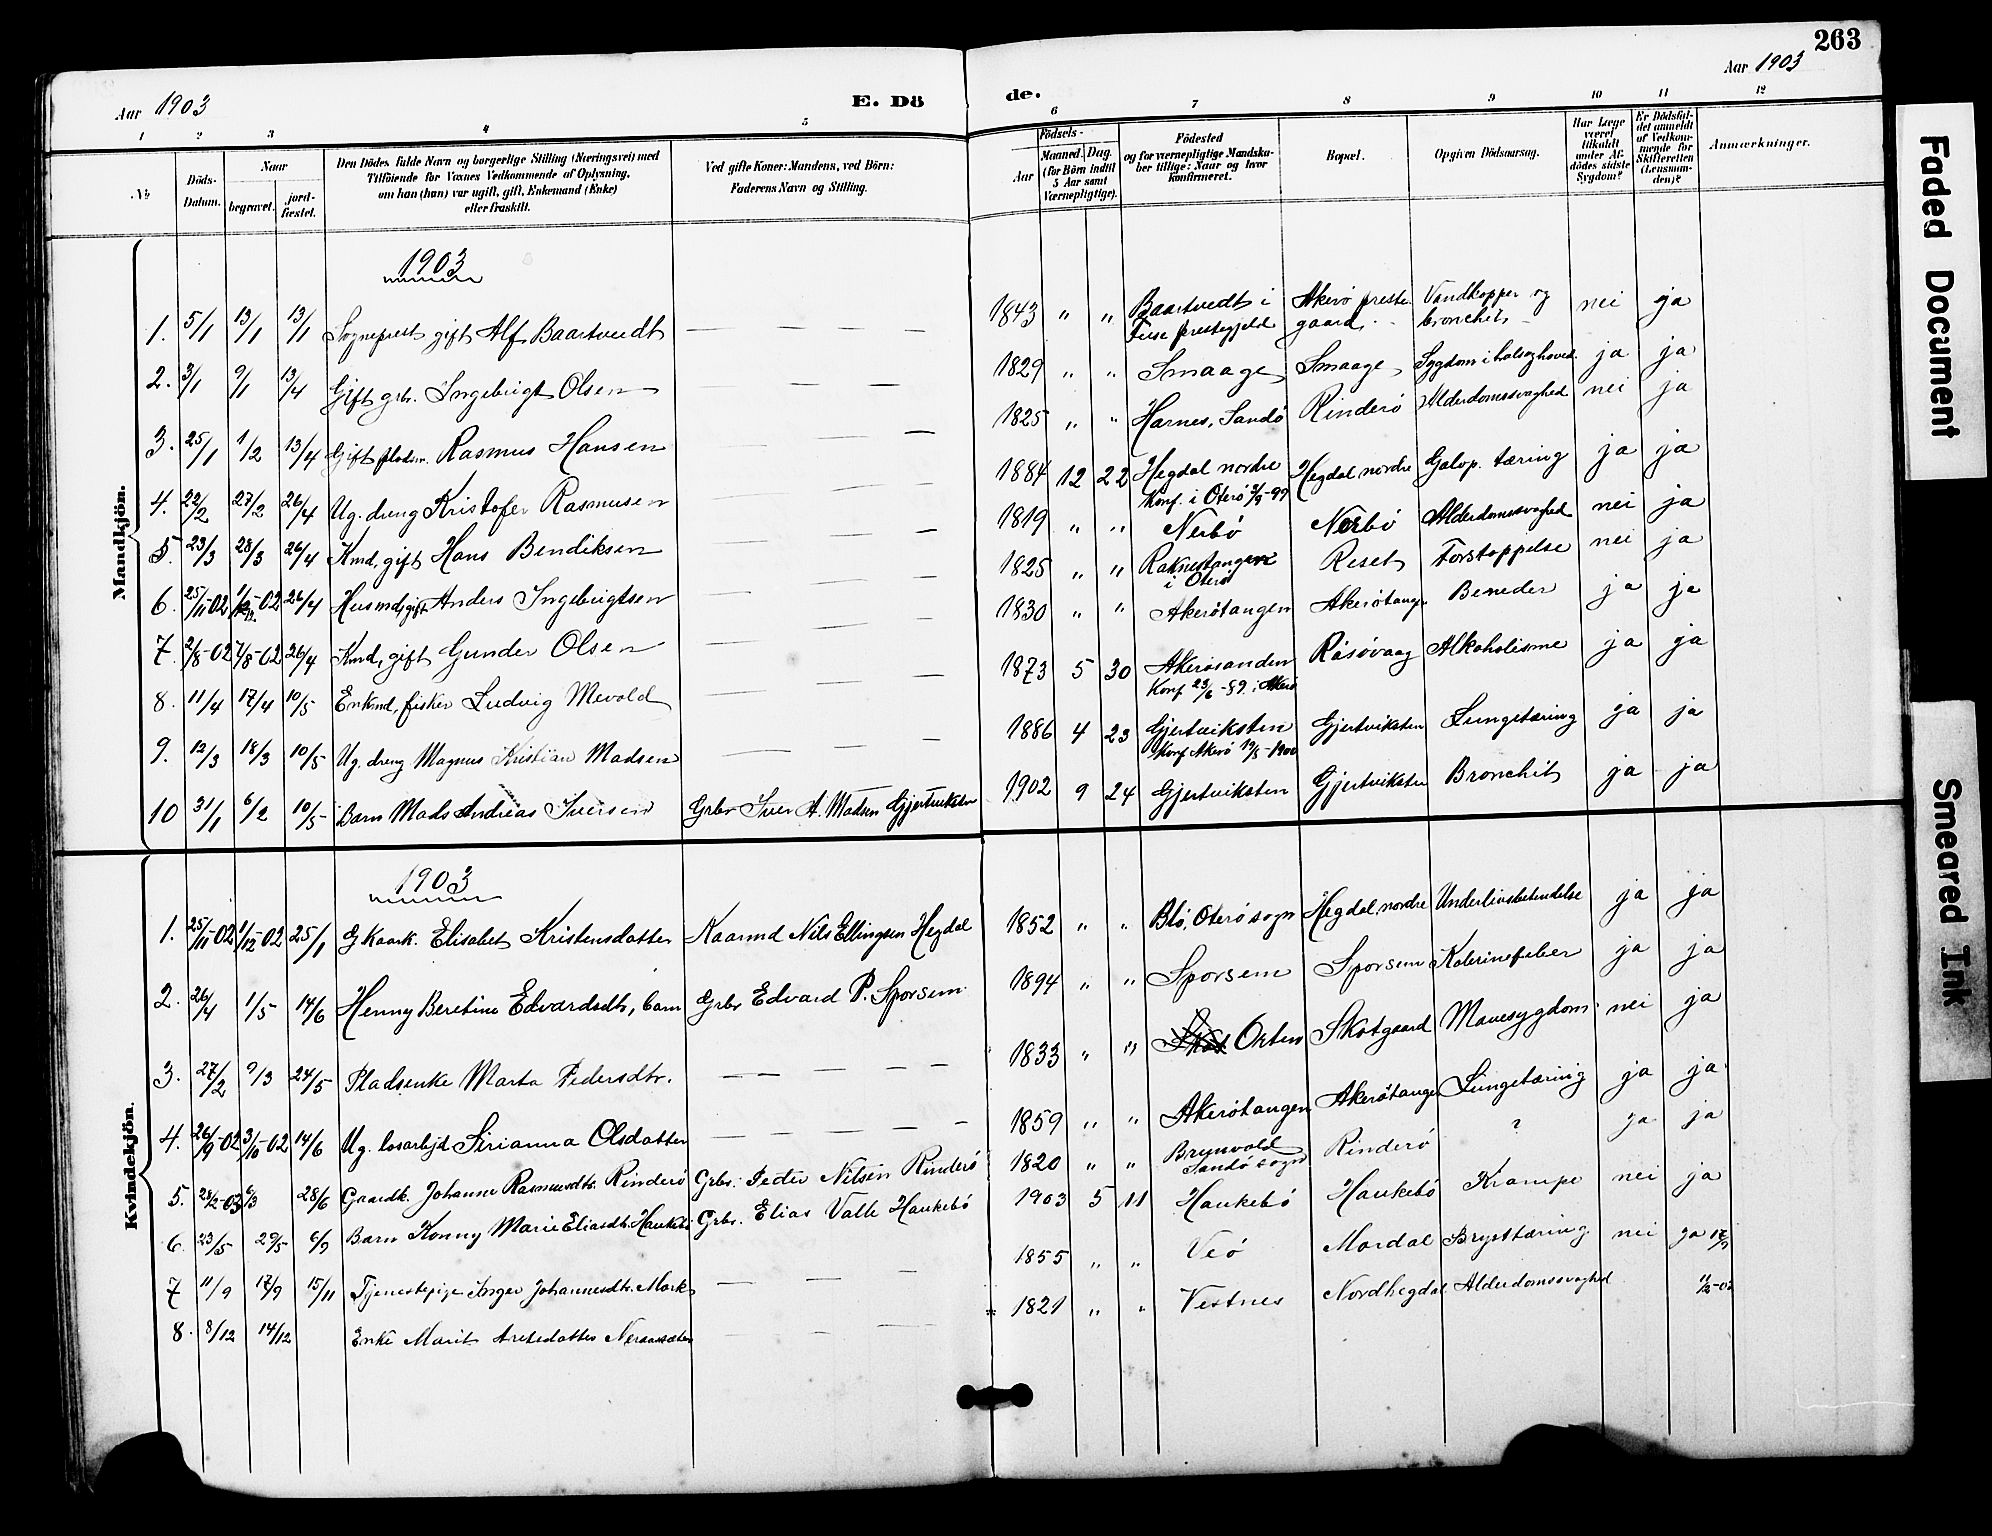 263
Aar 1903
E. Dö
de.
Aar 1903
1 2 3 4 5 6 7 8 9 10 11 12
№
Döds-Datum.
Naar
begravet.
jord-fæstet.
Den Dödes fulde Navn og borgerlige Stilling (Næringsvei) med
Tilföiende for Voxnes Vedkommende af Oplysning,
om han (hun) var ugift, gift, Enkemand (Enke)
eller fraskilt.
Ved gifte Koner: Mandens, ved Börn:
Faderens Navn og Stilling.
Födsels-
Aar
Maaned. Dag.
(for Börn indtil
5 Aar samt
Værnepligtige).
Födested
og for værnepligtige Mandska-
ber tillige: Naar og hvor
konfirmeret.
Bopæl.
Opgiven Dödsaarsag.
Har Læge
været
tilkaldt
under Af-
dödes sidste
Sygdom?
Er Dödsfal-
det anmeldt
af Vedkom-
mende for
Skifteretten
(Lensman-
den)?
Anmærkninger.
Mandkjön.
1903
1. 5/1 13/1 13/1 Sogneprest gift Alf Baartvedt — 1843 " " Baartvedt i Akerö preste- Vandkopper og nei ja
prestegjeld gaard. bronchit
2. 3/1 9/1 13/4 Gift grbr. Ingebrigt Olsen — 1829 " " Smaage Smaage Sygdom i hals og hoved ja ja
3. 25/1 1/2 13/4 Gift pladsm. Rasmus Hansen — 1825 " " Harnes, Sandö Rinderö Alderdomssvaghed nei ja
4. 22/2 27/2 26/4 Ug. dreng Kristofer Rasmusen — 1884 12 22 Hegdal nordre Hegdal nordre Galop. tæring ja ja
Konf. i Oterö -99
5. 23/3 28/3 26/4 Kmd, gift Hans Bendiksen — 1819 " " Nerbö Nerbö Alderdomssvaghed nei ja
6. 25/11-02 -02 26/4 Husmd, gift Anders Ingebrigtsen — 1825 " " Raknestangen Reset Forstoppelse nei ja
i Oterö
7. 2/8-02 7/8-02 26/4 Kmd, gift Gunder Olsen — 1830 " " Akerötangen Akerötangen Beneder ja ja
8. 11/4 17/4 10/5 Enkmd, fisker Ludvig Mevold — 1873 5 30 Akerösanden Räsövaag Alkoholisme ja ja
Konf 23/6 -89 i Akerö
9. 12/3 18/3 10/5 Ug. dreng Magnus Kristian Madsen — 1886 4 23 Gjertviksten Gjertviksten Lungetæring ja ja
Konf Akerö -1900
10 31/1 6/2 10/5 Barn Mads Andreas Iversen Grbr Iver A. Madsen Gjertviksten 1902 9 24 Gjertviksten Gjertviksten Bronchit ja ja
Kvindekjön.
1903
1. 25/11-02 1/12-02 25/1 G Kaark. Elisabet Kristensdatter Kaarmd Nils Ellingsen Hegdal 1852 " " Blö, Oterö sogn Hegdal, nordre Underlivsbetendelse ja ja
2. 26/4 1/5 14/6 Henny Beretine Edvardsdtr, barn Grbr Edvard P. Sporsem 1894 " " Sporsem Sporsem Kolerinefeber ja ja
3. 27/2 9/3 24/5 Pladsenke Marta Pedersdtr. — 1833 " " Orten Skotgaard Mavesygdom nei ja
4. 26/9-02 3/10-02 14/6 Ug. losarbejd Sirianna Olsdatter — 1859 " " Akerötangen Akerötangen Lungetæring ja ja
5. -03 /3 28/6 Gaardk. Johanne Rasmusdtr. Rinderö Grbr. Peder Nilsen Rinderö 1820 " " Brunvold Rinderö ? ja ja
Sandö sogn
6. 23/5 29/5 6/9 Barn Konny Marie Eliasdtr. Haukebö Grbr. Elias Valle Haukebö 1903 5 11 Haukebö Haukebö Krampe nei ja
7 11/9 17/9 15/11 Tjenestepige Inger Johannesdtr. Mork — 1855 " " Veö Mordal Brysttæring nei ja 17/9
8. 8/12 14/12 Enke Marit — 1821 " " Vestnes Nordhegdal Alderdomssvaghed
Faded Document
Smeared Ink